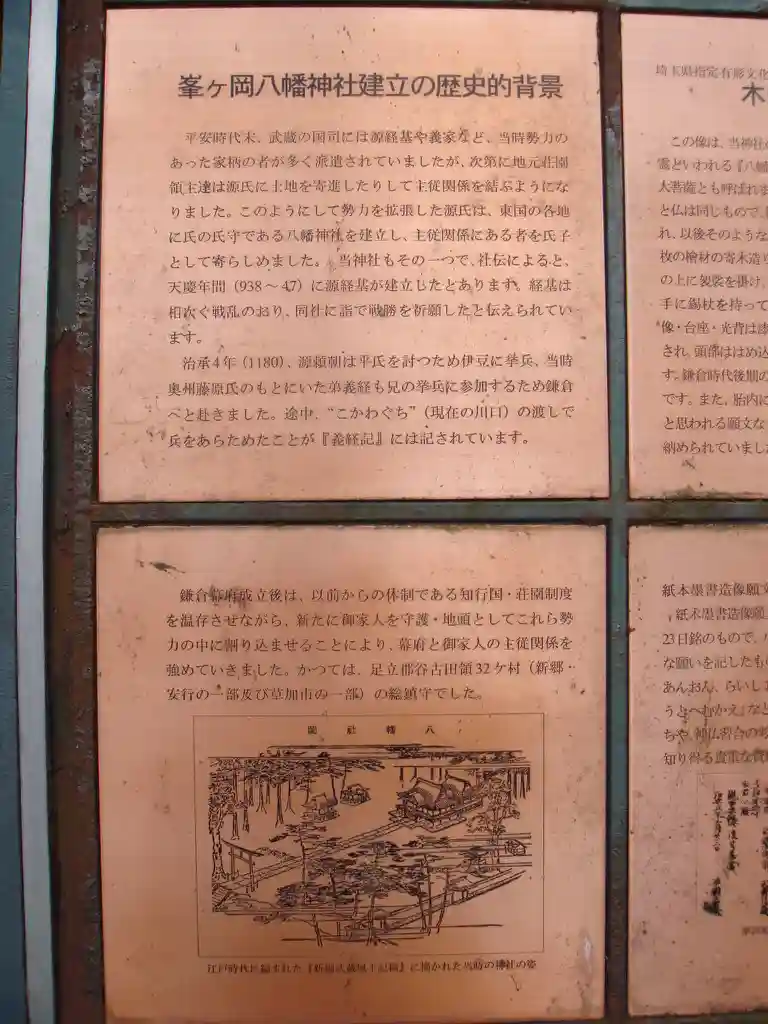 峯ヶ岡八幡神社建立の歴史的背景
平安時代末、武蔵の国司には源経基や義家など、当時勢力の
あった家柄の者が多く派遣されていましたが、次第に地元荘園
領主達は源氏に土地を寄進したりして主従関係を結ぶようにな
りました。このようにして勢力を拡張した源氏は、東国の各地
に氏の氏守である八幡神社を建立し、主従関係にある者を氏子
として寄らしめました。当神社もその一つで、社伝によると、
天慶年間（938～47）に源経基が建立したとあります。経基は
相次ぐ戦乱のおり、同社に詣で戦勝を祈願したと伝えられてい
ます。
治承4年（1180）、源頼朝は平氏を討つため伊豆に挙兵、当時
奥州藤原氏のもとにいた弟義経も兄の挙兵に参加するため鎌倉
へと赴きました。途中、“こかわぐち”（現在の川口）の渡しで
兵をあらためたことが『義経記』には記されています。
鎌倉幕府成立後は、以前からの体制である知行国・荘園制度
を温存させながら、新たに御家人を守護・地頭としてこれら勢
力の中に割り込ませることにより、幕府と御家人の主従関係を
強めていきました。かつては、足立郡谷古田領32ケ村（新郷・
安行の一部及び草加市の一部）の総鎮守でした。
岡社幡八
江戸時代に編まれた『新編武蔵風土記稿』に描かれた当時の神社の姿
埼玉県指定有形文化
木
この像は、当神社の
霊といわれる『八幡
大菩薩とも呼ばれま
と仏は同じもので、
れ、以後そのような
枚の檜材の寄木造り
の上に袈裟を掛け、
手に錫杖を持って
像・台座・光背は漆
され、頭部ははめ込
す。鎌倉時代後期の
です。また、胎内に
と思われる願文な
納められていました
紙本墨書造像願文
紙本墨書造像願
23日銘のもので、
な願いを記したもの
あんおん、らいし
うとへむかえ』など
ちや、神仏習合の
知り得る貴重な資